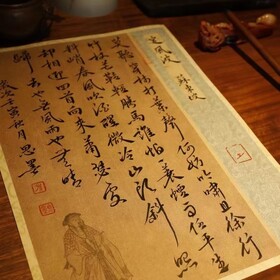 定風波
蘇東坡
莫聽穿林打葉聲何妨吟嘯且徐行
竹杖芒鞋輕勝馬誰怕一蓑煙雨任平生
料峭春風吹酒醒微冷山頭斜照
却相迎回首向來蕭瑟處
歸去也無風雨也無晴
秋月思墨